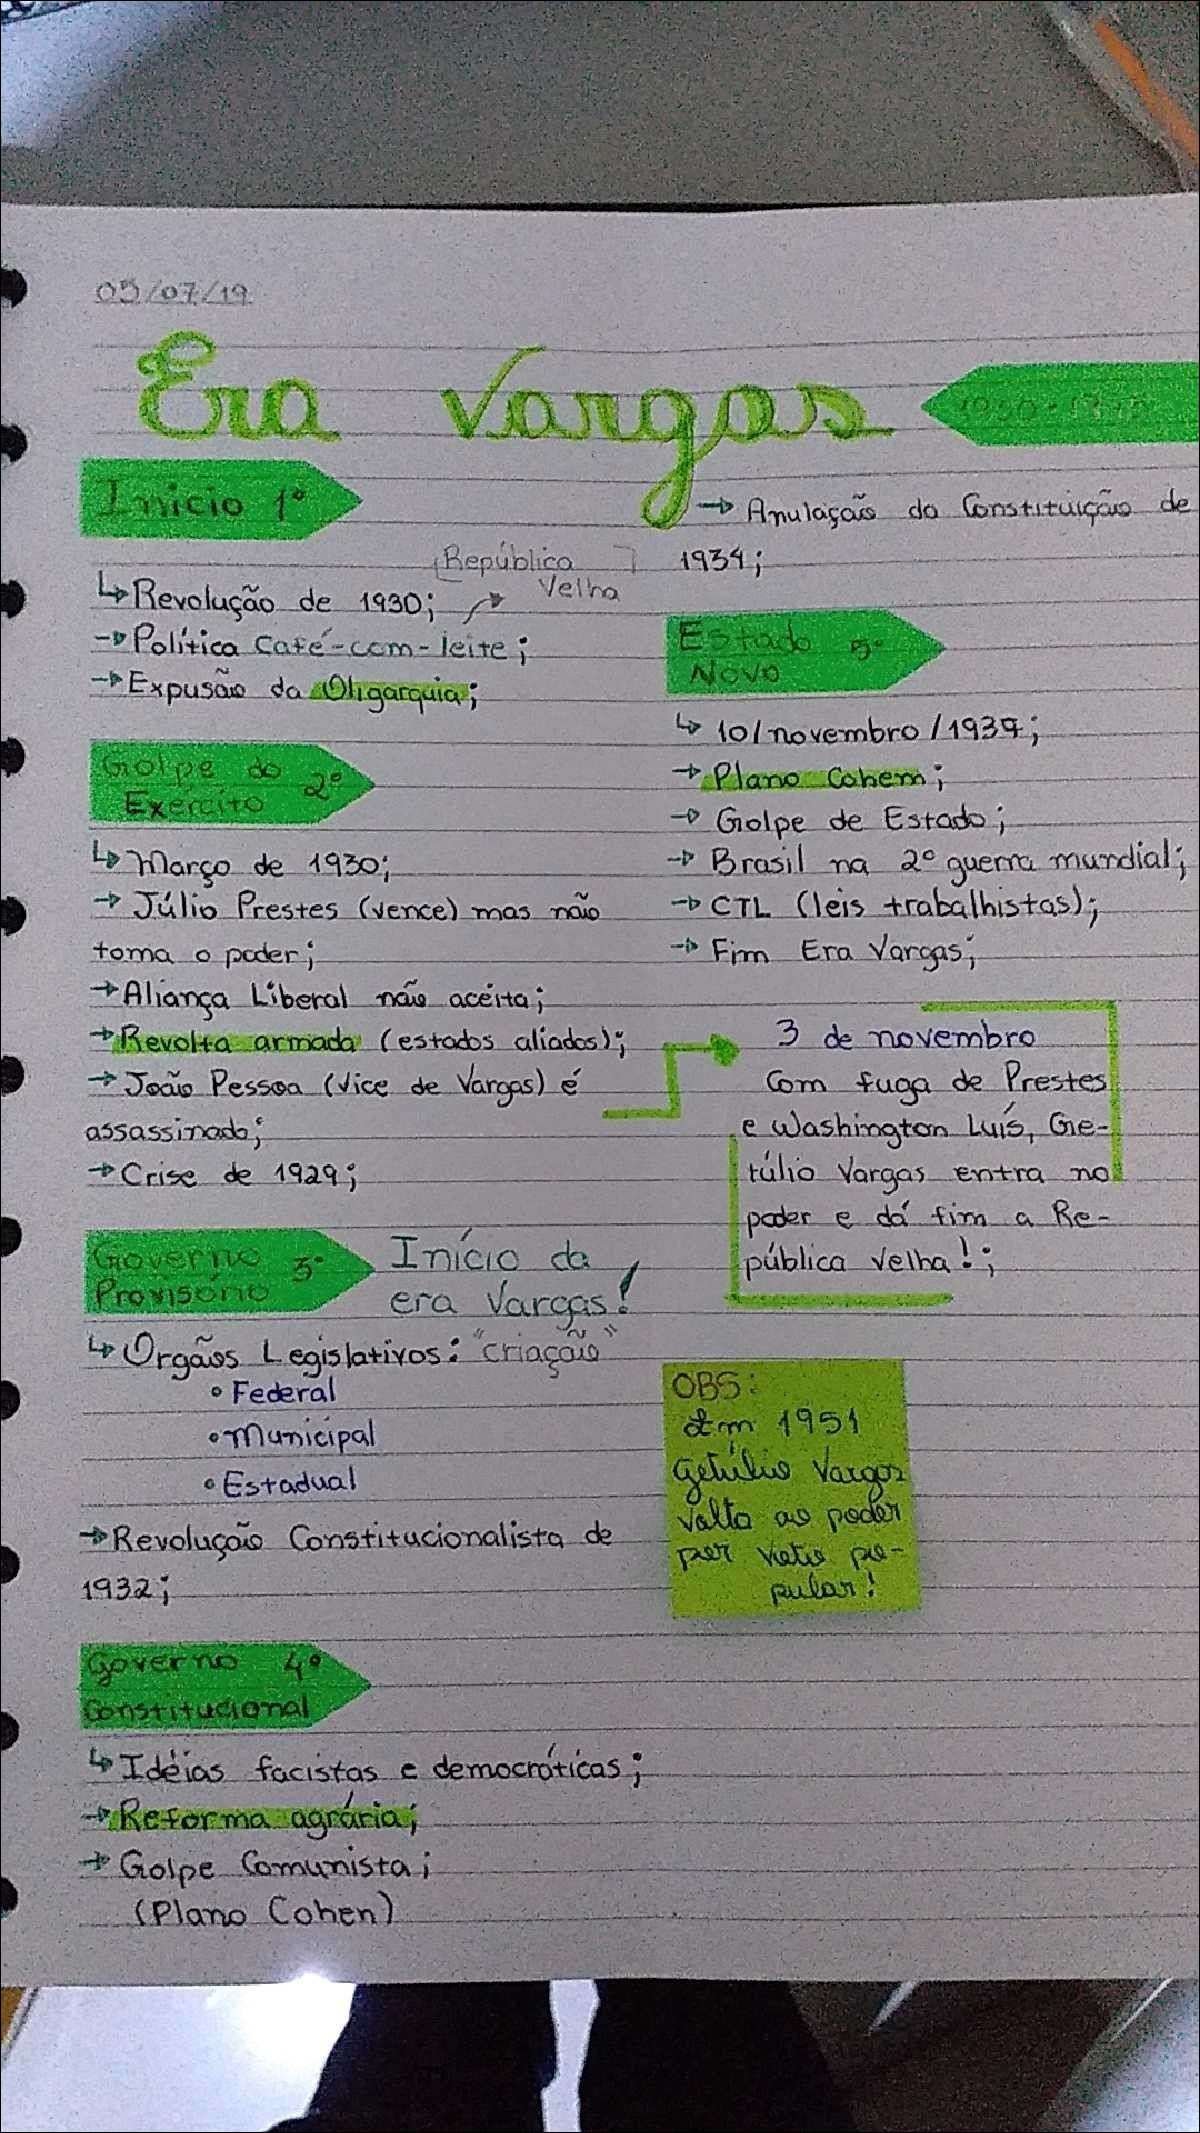 05/07/19
Era Vargas
Início 1º
[República
Velha]
↳ Revolução de 1930;
→ Política Café-com-leite;
→ Expusão da Oligarquia;
Golpe do
Exército 2º
↳ Março de 1930;
→ Júlio Prestes (vence) mas não
toma o poder;
→ Aliança Liberal não aceita;
→ Revolta armada (estados aliados);
→ João Pessoa (vice de Vargas) é
assassinado;
→ Crise de 1929;
Governo 3º
Provisório
Início da
era Vargas!
↳ Orgãos Legislativos: "criação"
• Federal
• Municipal
• Estadual
→ Revolução Constitucionalista de
1932;
Governo 4º
Constitucional
↳ Idéias facistas e democráticas;
→ Reforma agrária;
→ Golpe Comunista;
(Plano Cohen)
→ Anulação da Constituição de
1934;
Estado 5º
Novo
↳ 10/novembro/1937;
→ Plano Cohem;
→ Golpe de Estado;
→ Brasil na 2º guerra mundial;
→ CTL (leis trabalhistas);
→ Fim Era Vargas;
3 de novembro
Com fuga de Prestes
e Washington Luís, Ge-
túlio Vargas entra no
poder e dá fim a Re-
pública Velha!;
OBS:
Em 1951
Getúlio Vargas
volta ao poder
por voto po-
pular!